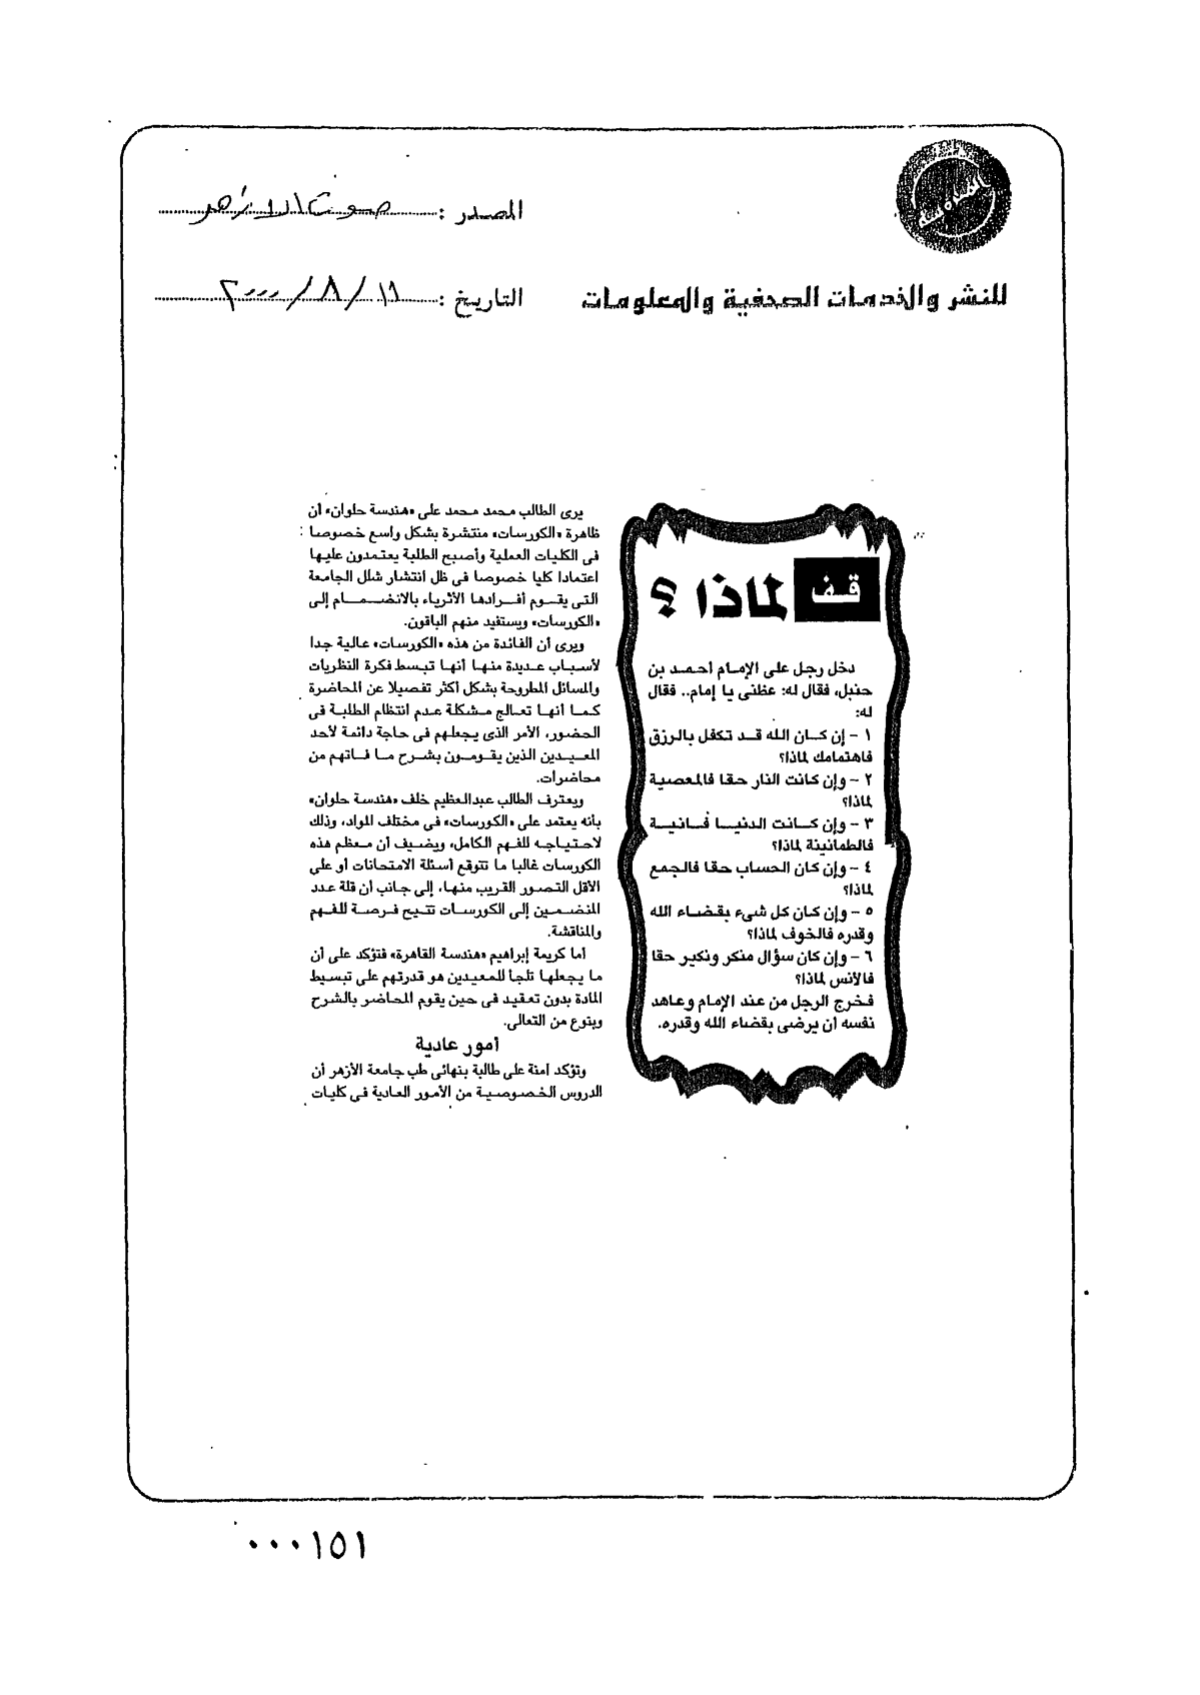 المصدر : صوت الأزهر
للنشر والخدمات الصحفية والمعلومات
التاريخ : ١٨ / ٨ / ٢٠٠٠
قف لماذا ؟
دخل رجل على الإمام أحمد بن
حنبل، فقال له: عظنى يا إمام.. فقال
له:
١ - إن كان الله قد تكفل بالرزق
فاهتمامك لماذا؟
٢ - وإن كانت النار حقا فالمعصية
لماذا؟
٣ - وإن كانت الدنيا فانية
فالطمانينة لماذا؟
٤ - وإن كان الحساب حقا فالجمع
لماذا؟
٥ - وإن كان كل شىء بقضاء الله
وقدره فالخوف لماذا؟
٦ - وإن كان سؤال منكر ونكير حقا
فالأنس لماذا؟
فخرج الرجل من عند الإمام وعاهد
نفسه أن يرضى بقضاء الله وقدره.
يرى الطالب محمد محمد على «هندسة حلوان» أن
ظاهرة «الكورسات» منتشرة بشكل واسع خصوصا
فى الكليات العملية وأصبح الطلبة يعتمدون عليها
اعتمادا كليا خصوصا فى ظل انتشار شلل الجامعة
التى يقوم أفرادها الأثرياء بالانضمام إلى
«الكورسات» ويستفيد منهم الباقون.
ويرى أن الفائدة من هذه «الكورسات» عالية جدا
لأسباب عديدة منها أنها تبسط فكرة النظريات
والمسائل المطروحة بشكل أكثر تفصيلا عن المحاضرة
كما أنها تعالج مشكلة عدم انتظام الطلبة فى
الحضور، الأمر الذى يجعلهم فى حاجة دائمة لأحد
المعيدين الذين يقومون بشرح ما فاتهم من
محاضرات.
ويعترف الطالب عبدالعظيم خلف «هندسة حلوان»
بأنه يعتمد على «الكورسات» فى مختلف المواد، وذلك
لاحتياجه للفهم الكامل، ويضيف أن معظم هذه
الكورسات غالبا ما تتوقع أسئلة الامتحانات أو على
الأقل التصور القريب منها، إلى جانب أن قلة عدد
المنضمين إلى الكورسات تتيح فرصة للفهم
والمناقشة.
أما كريمة إبراهيم «هندسة القاهرة» فتؤكد على أن
ما يجعلها تلجأ للمعيدين هو قدرتهم على تبسيط
المادة بدون تعقيد فى حين يقوم المحاضر بالشرح
وبنوع من التعالى.
أمور عادية
وتؤكد امنة على طالبة بنهائى طب جامعة الأزهر أن
الدروس الخصوصية من الأمور العادية فى كليات
٠٠٠١٥١